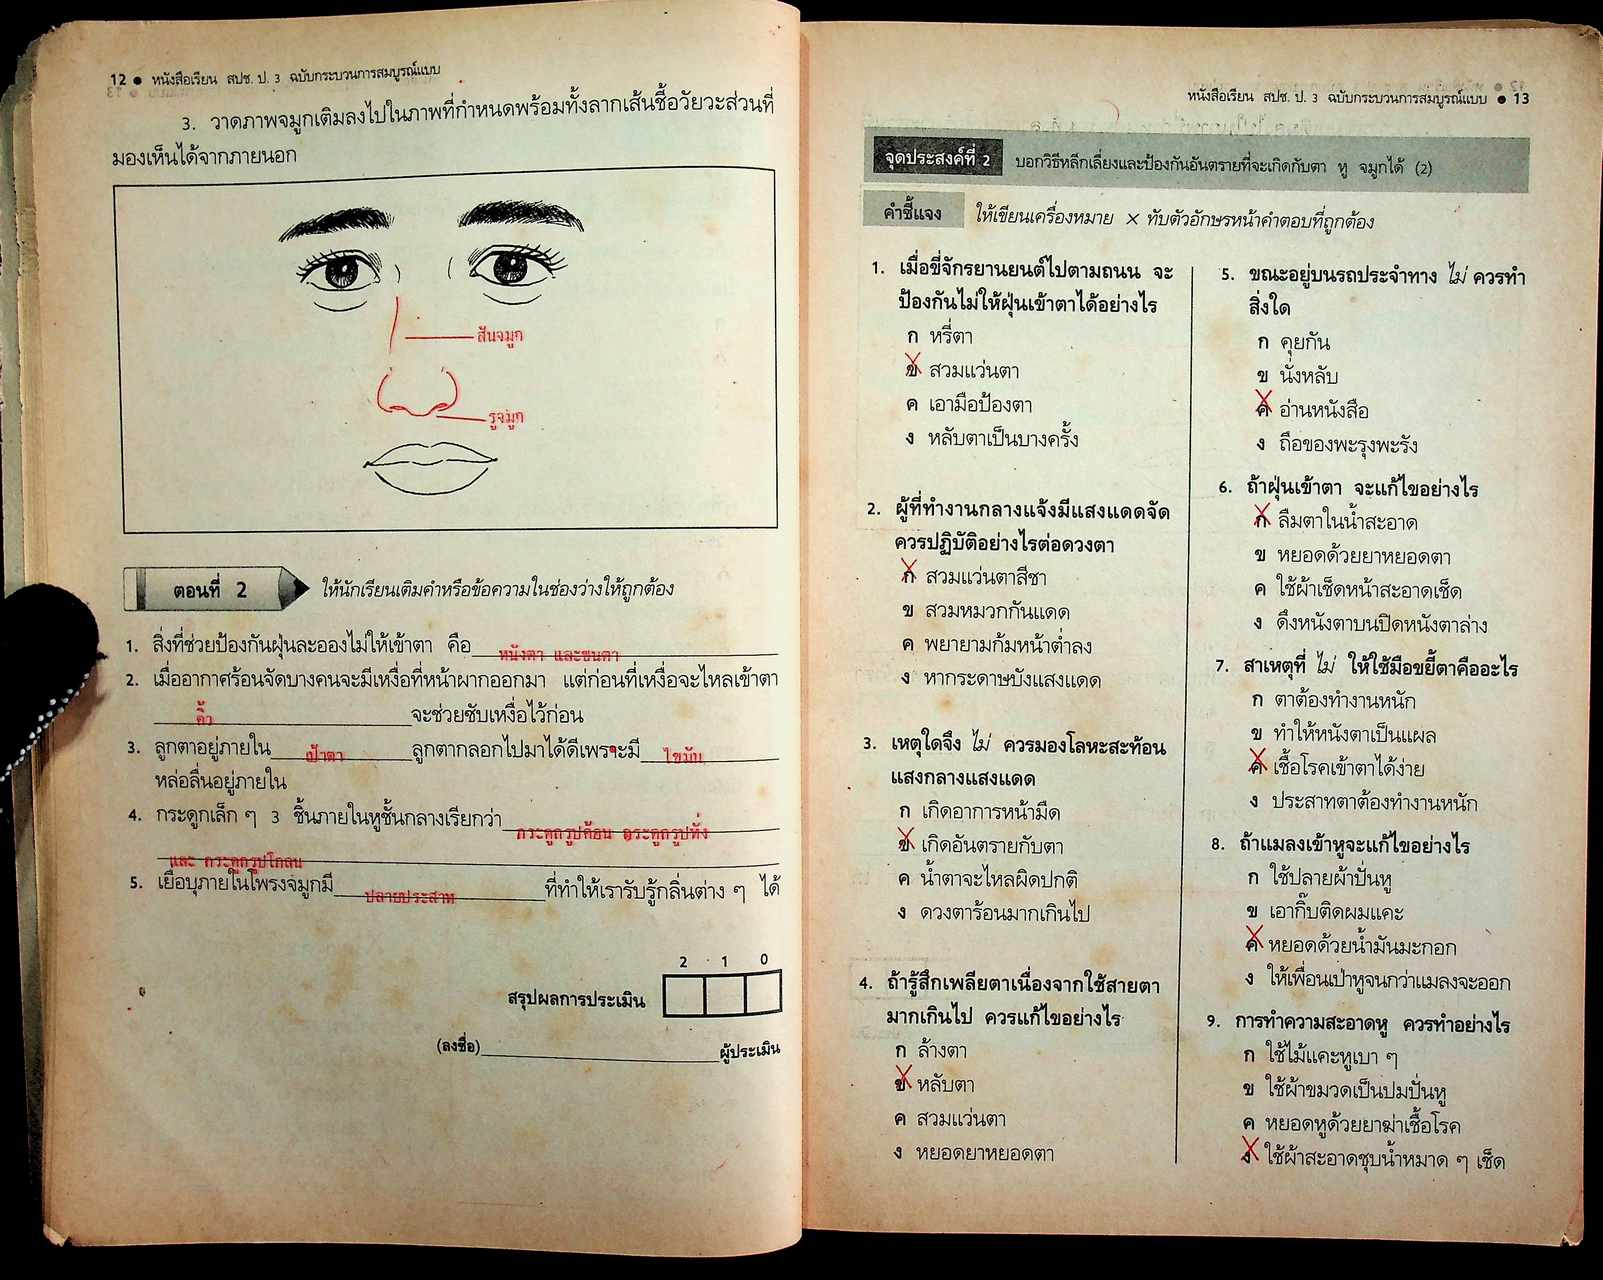 12 ● หนังสือเรียน สปช. ป. 3 ฉบับกระบวนการสมบูรณ์แบบ
3. วาดภาพจมูกเติมลงไปในภาพที่กำหนดพร้อมทั้งลากเส้นชี้อวัยวะส่วนที่
มองเห็นได้จากภายนอก
สันจมูก
รูจมูก
ตอนที่ 2 ให้นักเรียนเติมคำหรือข้อความในช่องว่างให้ถูกต้อง
1. สิ่งที่ช่วยป้องกันฝุ่นละอองไม่ให้เข้าตา คือ หนังตา และขนตา
2. เมื่ออากาศร้อนจัดบางคนจะมีเหงื่อที่หน้าผากออกมา แต่ก่อนที่เหงื่อจะไหลเข้าตา
คิ้ว จะช่วยซับเหงื่อไว้ก่อน
3. ลูกตาอยู่ภายใน เบ้าตา ลูกตากลอกไปมาได้ดีเพราะมี ไขมัน
หล่อลื่นอยู่ภายใน
4. กระดูกเล็ก ๆ 3 ชิ้นภายในหูชั้นกลางเรียกว่า กระดูกรูปค้อน กระดูกรูปทั่ง
และ กระดูกรูปโกลน
5. เยื่อบุภายในโพรงจมูกมี ปลายประสาท ที่ทำให้เรารับรู้กลิ่นต่าง ๆ ได้
2 1 0
สรุปผลการประเมิน
(ลงชื่อ) ผู้ประเมิน
หนังสือเรียน สปช. ป. 3 ฉบับกระบวนการสมบูรณ์แบบ ● 13
จุดประสงค์ที่ 2 บอกวิธีหลีกเลี่ยงและป้องกันอันตรายที่จะเกิดกับตา หู จมูกได้ (2)
คำชี้แจง ให้เขียนเครื่องหมาย × ทับตัวอักษรหน้าคำตอบที่ถูกต้อง
1. เมื่อขี่จักรยานยนต์ไปตามถนน จะ
ป้องกันไม่ให้ฝุ่นเข้าตาได้อย่างไร
ก หรี่ตา
ข สวมแว่นตา
ค เอามือป้องตา
ง หลับตาเป็นบางครั้ง
2. ผู้ที่ทำงานกลางแจ้งมีแสงแดดจัด
ควรปฏิบัติอย่างไรต่อดวงตา
ก สวมแว่นตาสีชา
ข สวมหมวกกันแดด
ค พยายามก้มหน้าต่ำลง
ง หากระดาษบังแสงแดด
3. เหตุใดจึง ไม่ ควรมองโลหะสะท้อน
แสงกลางแสงแดด
ก เกิดอาการหน้ามืด
ข เกิดอันตรายกับตา
ค น้ำตาจะไหลผิดปกติ
ง ดวงตาร้อนมากเกินไป
4. ถ้ารู้สึกเพลียตาเนื่องจากใช้สายตา
มากเกินไป ควรแก้ไขอย่างไร
ก ล้างตา
ข หลับตา
ค สวมแว่นตา
ง หยอดยาหยอดตา
5. ขณะอยู่บนรถประจำทาง ไม่ ควรทำ
สิ่งใด
ก คุยกัน
ข นั่งหลับ
ค อ่านหนังสือ
ง ถือของพะรุงพะรัง
6. ถ้าฝุ่นเข้าตา จะแก้ไขอย่างไร
ก ลืมตาในน้ำสะอาด
ข หยอดด้วยยาหยอดตา
ค ใช้ผ้าเช็ดหน้าสะอาดเช็ด
ง ดึงหนังตาบนปิดหนังตาล่าง
7. สาเหตุที่ ไม่ ให้ใช้มือขยี้ตาคืออะไร
ก ตาต้องทำงานหนัก
ข ทำให้หนังตาเป็นแผล
ค เชื้อโรคเข้าตาได้ง่าย
ง ประสาทตาต้องทำงานหนัก
8. ถ้าแมลงเข้าหูจะแก้ไขอย่างไร
ก ใช้ปลายผ้าปั่นหู
ข เอากิ๊บติดผมแคะ
ค หยอดด้วยน้ำมันมะกอก
ง ให้เพื่อนเป่าหูจนกว่าแมลงจะออก
9. การทำความสะอาดหู ควรทำอย่างไร
ก ใช้ไม้แคะหูเบา ๆ
ข ใช้ผ้าขมวดเป็นปมปั่นหู
ค หยอดหูด้วยยาฆ่าเชื้อโรค
ง ใช้ผ้าสะอาดชุบน้ำหมาด ๆ เช็ด